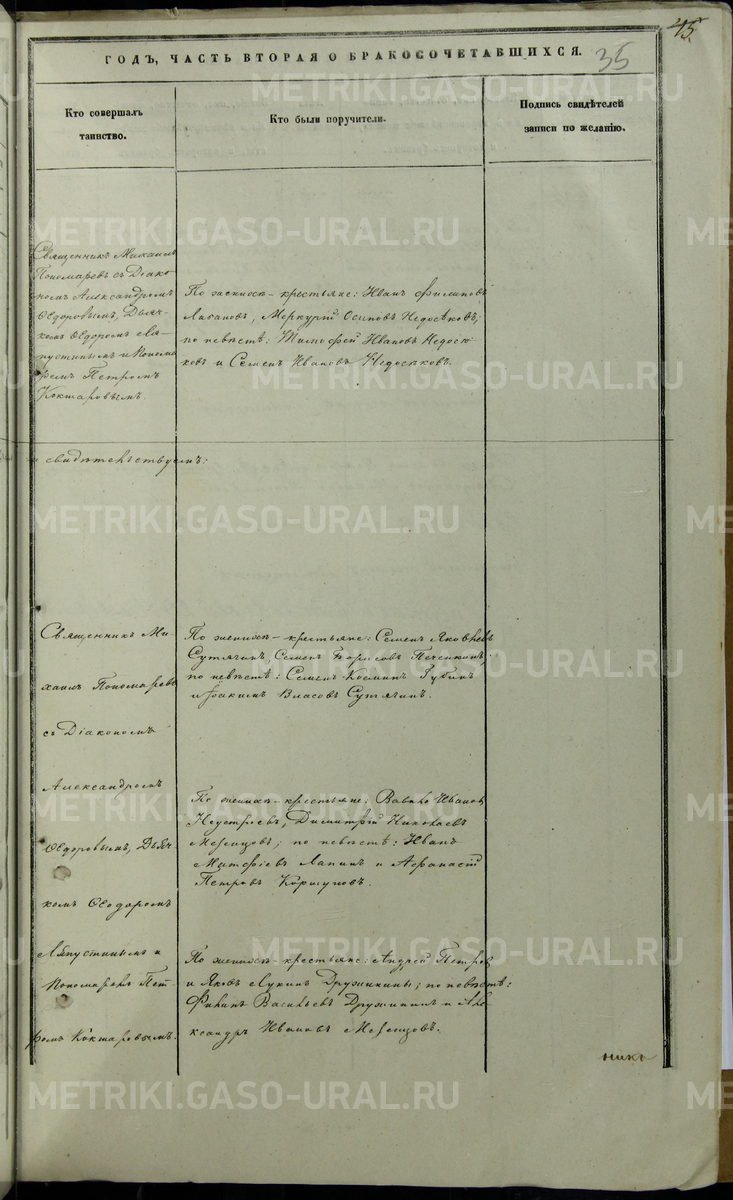 45.
35
ГОДЪ, ЧАСТЬ ВТОРАЯ О БРАКОСОЧЕТАВШИХСЯ.
Кто совершалъ
таинство.
Кто были поручители.
Подпись свидѣтелей
записи по желанію.
Священникъ Михаилъ
Пономаревъ съ Діако-
номъ Александромъ
Ѳедоровымъ, Дьяч-
комъ Ѳедоромъ Ля-
пустинымъ и Понома-
ремъ Петромъ
Кокшаровымъ.
По женихѣ – крестьяне: Иванъ Филиповъ
Осиповъ Недосѣковъ;
по невѣстѣ: Тимофей Ивановъ Недосѣ-
ковъ и Семенъ Ивановъ Недосѣковъ.
свидѣтельствуемъ:
Священникъ Ми-
хаилъ Пономаревъ
съ Діакономъ
Александромъ
Ѳедоровымъ, Дьяч-
комъ Ѳеодоромъ
Ляпустинымъ и
Пономаремъ Пет-
ромъ Кокшаровымъ.
По женихѣ – крестьяне: Семенъ Яковлевъ
Сутягинъ, Семенъ Борисовъ
по невѣстѣ: Семенъ Козминъ Губинъ
и Іоакимъ Власовъ Сутягинъ.
По женихѣ – крестьяне: Вавило Ивановъ
Неустроевъ, Димитрій Николаевъ
Мезенцовъ; по невѣстѣ: Иванъ
Матфіевъ Лапинъ и Афанасій
Петровъ Коршуновъ.
По женихѣ – крестьяне: Андрей Петровъ
и Яковъ Лукинъ Дружинины; по невѣстѣ:
Филипъ Васильевъ Дружининъ и Але-
ксандръ Ивановъ Мезенцовъ.
METRIKI.GASO-URAL.RU